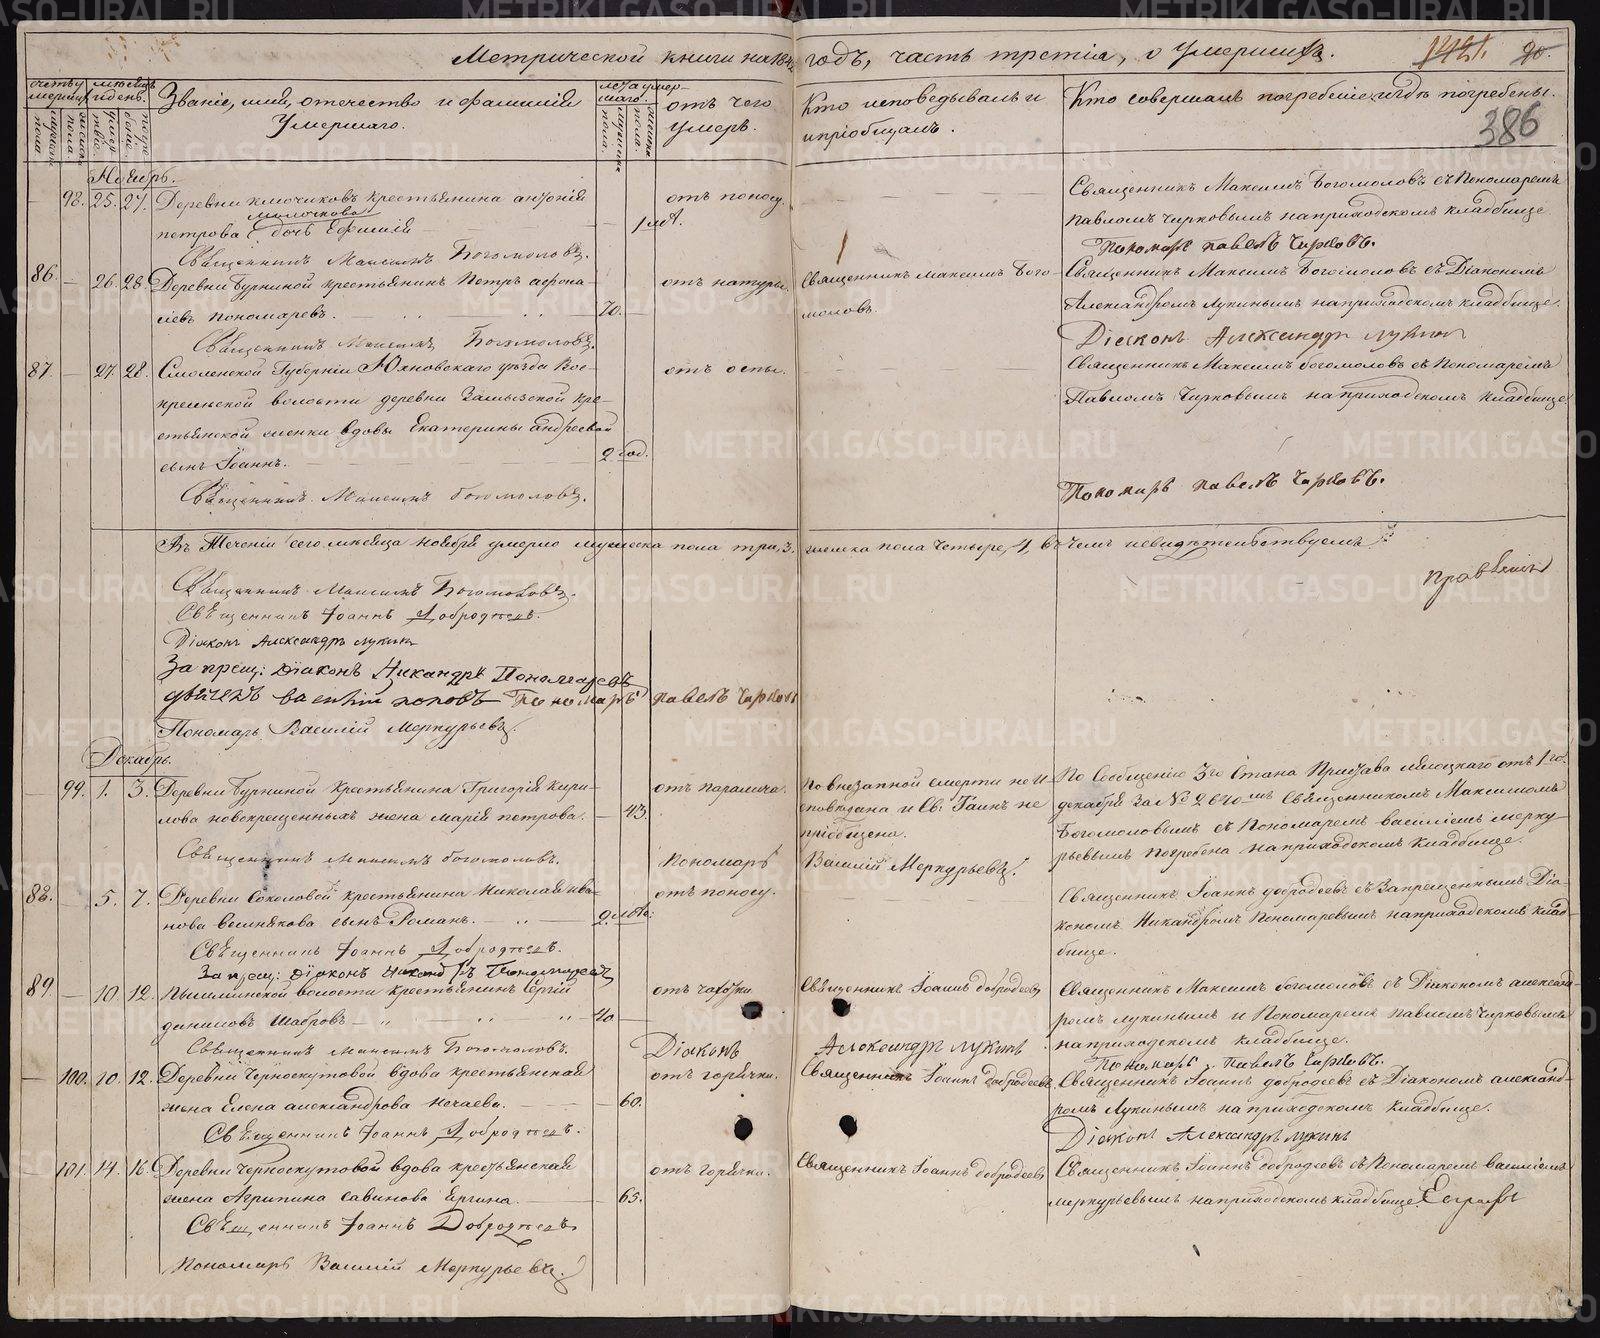 Метрической книги на 1842 годъ, часть третія, о умершихъ.
386
Званіе, имя, отечество и фамилія Умершаго.
отъ чего умеръ.
Кто исповедывалъ и пріобщалъ.
Кто совершалъ погребеніе и гдѣ погребены.
Ноябрь.
98. 25. 27. Деревни Ключиковъ крестьянина Антонія
Молочкова
петрова дочь Ефимія
1 лѣт.
отъ поносу.
Священникъ Максимъ Богомоловъ съ Пономаремъ
Павломъ Чирковымъ на приходскомъ кладбище
Священникъ Максимъ Богомоловъ.
Пономарь павелъ Чирковъ.
86. 26. 28. Деревни Бурниной крестьянинъ Петръ афона-
сіевъ Пономаревъ.
70.
отъ натуры.
Священникъ Максимъ Бого-
моловъ.
Священникъ Максимъ Богомоловъ съ Діакономъ
Александромъ Лукинымъ на приходскомъ кладбище.
Священникъ Максимъ Богомоловъ.
Діаконъ Александръ Лукинъ
87. 27. 28. Смоленской Губерніи Юхновскаго уѣзда Вос-
кресенской волости деревни кре-
стьянской женки вдовы Екатерины андреевой
сынъ Іоаннъ.
2 год.
отъ оспы.
Священникъ Максимъ богомоловъ съ Пономаремъ
Павломъ Чирковымъ на приходскомъ кладбище
Священникъ Максимъ богомоловъ.
Пономарь павелъ Чирковъ.
Въ Теченіи сего месяца ноября умерло мужеска пола три, 3. женска пола четыре, 4, въ чемъ и свидѣтельствуемъ
Священникъ Максимъ Богомоловъ.
Священникъ Іоаннъ Добродѣевъ.
Діаконъ Александръ Лукинъ
Запрещ: діаконъ Никандръ Пономаревъ
дьячекъ василій поповъ Пономарь павелъ Чирковъ
Пономарь Василій Меркурьевъ.
Декабрь.
99. 1. 3. Деревни Бурниной крестьянина Григорія Кири-
лова новокрещенныхъ жена марія петрова.
43.
отъ паралича.
По внезапной смерти не и-
споведана и Св. Таинъ не
пріобщена.
По Сообщенію 3го Стана Пристава отъ 1го
декабря за № 2640мъ Священникомъ Максимомъ
Богомоловымъ съ Пономаремъ василіемъ мерку-
рьевымъ погребена на приходскомъ кладбище.
Священникъ Максимъ богомоловъ.
Пономарь Василій Меркурьевъ.
88. 5. 7. Деревни Соколовой крестьянина Николая ива-
нова сынъ Романъ.
2. лѣтъ.
отъ поносу.
Священникъ Іоаннъ добродеевъ съ Запрещеннымъ Діа-
кономъ Никандромъ Пономаревымъ на приходскомъ клад-
бище.
Священникъ Іоаннъ Добродѣевъ.
Запрещ: діаконъ Никандръ Пономаревъ
89. 10. 12. Пышминской волости крестьянинъ Сергій
даниловъ Шабровъ
40.
отъ чахотки.
Священникъ Іоаннъ добродеевъ
Священникъ Максимъ богомоловъ съ Діакономъ александ-
ромъ лукинымъ и Пономаремъ павломъ Чирковымъ
на приходскомъ кладбище.
Священникъ Максимъ Богомоловъ.
Діаконъ Александръ лукинъ
Пономарь Павелъ Чирковъ.
100. 10. 12. Деревни Черноскутовой вдова крестьянская
жена Елена александрова Нечаева.
60.
отъ горячки.
Священникъ Іоаннъ добродеевъ
Священникъ Іоаннъ добродеевъ съ Діакономъ александ-
ромъ Лукинымъ на приходскомъ кладбище.
Священникъ Іоаннъ Добродѣевъ.
Діаконъ Александръ лукинъ
101. 14. 16. Деревни Черноскутовой вдова крестьянская
жена Агрипина савинова Ергина.
65.
отъ горячки.
Священникъ Іоаннъ добродеевъ
Священникъ Іоаннъ добродеевъ съ Пономаремъ василіемъ
меркурьевымъ на приходскомъ кладбище.
Священникъ Іоаннъ Добродѣевъ
Пономарь Василій Меркурьевъ.
METRIKI.GASO-URAL.RU